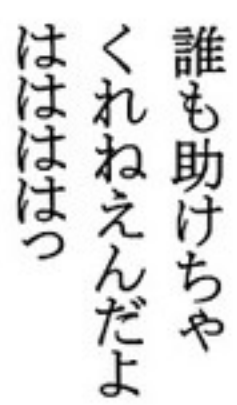 誰も助けちゃ
くれねえんだよ
はははははっ